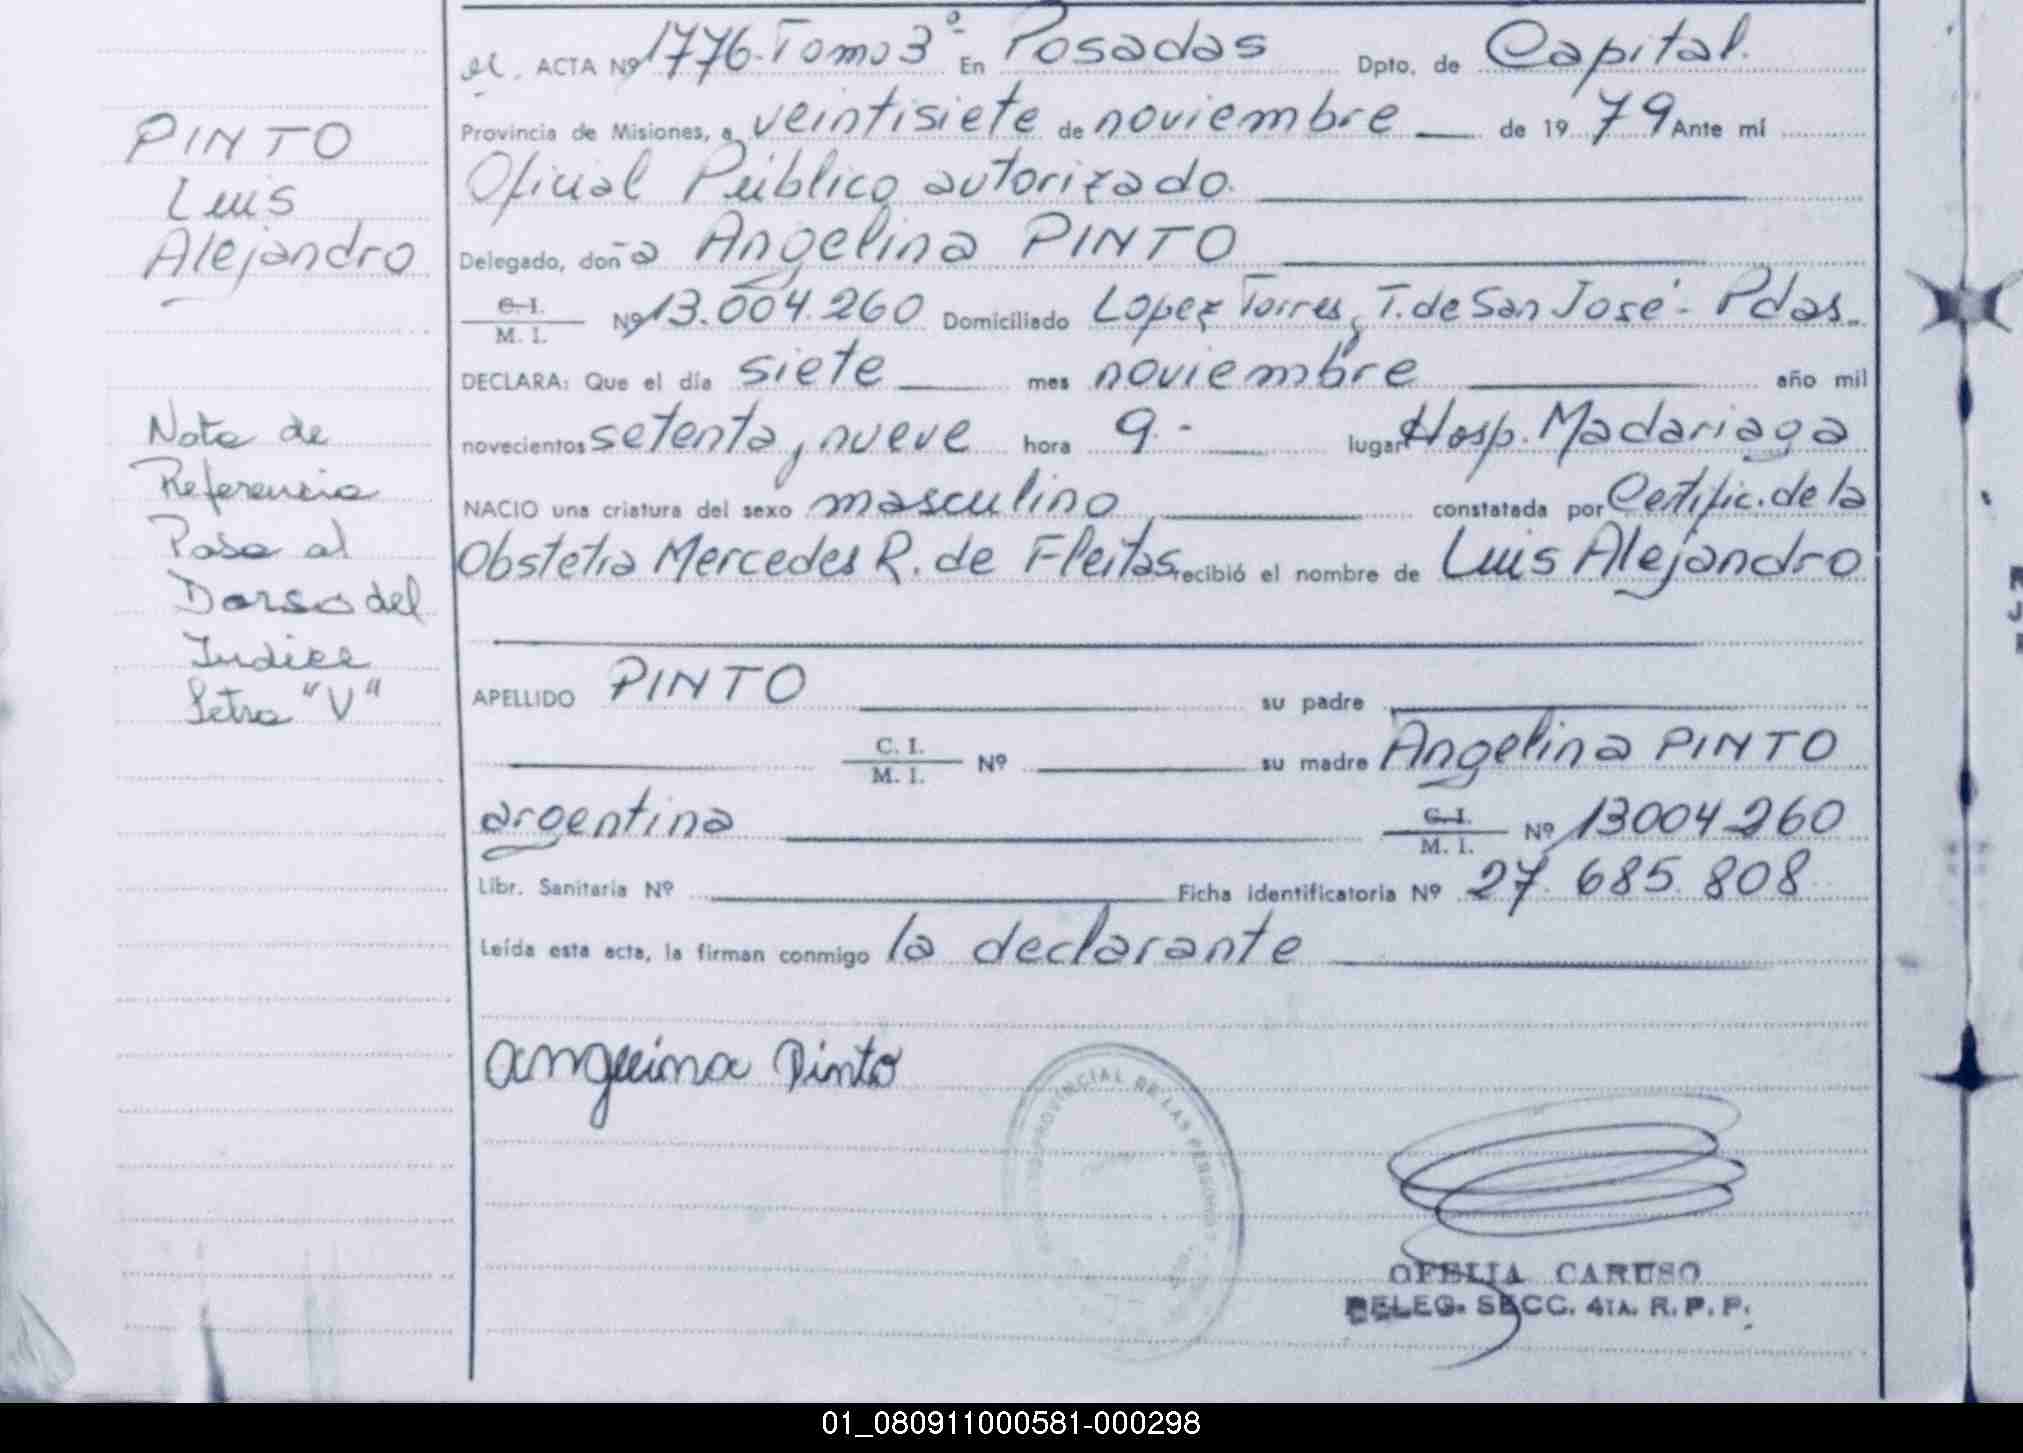 PINTO
Luis
Alejandro
Nota de
Referencia
Pasa al
Dorso del
Indice
Letra "V"
ACTA Nº 1776-Tomo 3º En Posadas Dpto. de Capital.
Provincia de Misiones, a veintisiete de noviembre de 1979 Ante mí
Oficial Público autorizado.
Delegado, doña Angelina PINTO
C. I.
M. I. Nº 13.004.260 Domiciliado Lopez Torres, T. de San José - Pdas.
DECLARA: Que el día siete mes noviembre año mil
novecientos setenta, nueve hora 9.- lugar Hosp. Madariaga
NACIO una criatura del sexo masculino constatada por Certific. de la
Obstetra Mercedes R. de Fleitas recibió el nombre de Luis Alejandro
APELLIDO PINTO su padre
C. I.
M. I. Nº su madre Angelina PINTO
argentina C. I.
M. I. Nº 13004260
Libr. Sanitaria Nº Ficha identificatoria Nº 27.685.808
Leída esta acta, la firman conmigo la declarante
Angelina Pinto
PROVINCIAL DE LAS PERSONAS
OFELIA CARUSO
DELEG. SECC. 4TA. R. P. P.
01_080911000581-000298